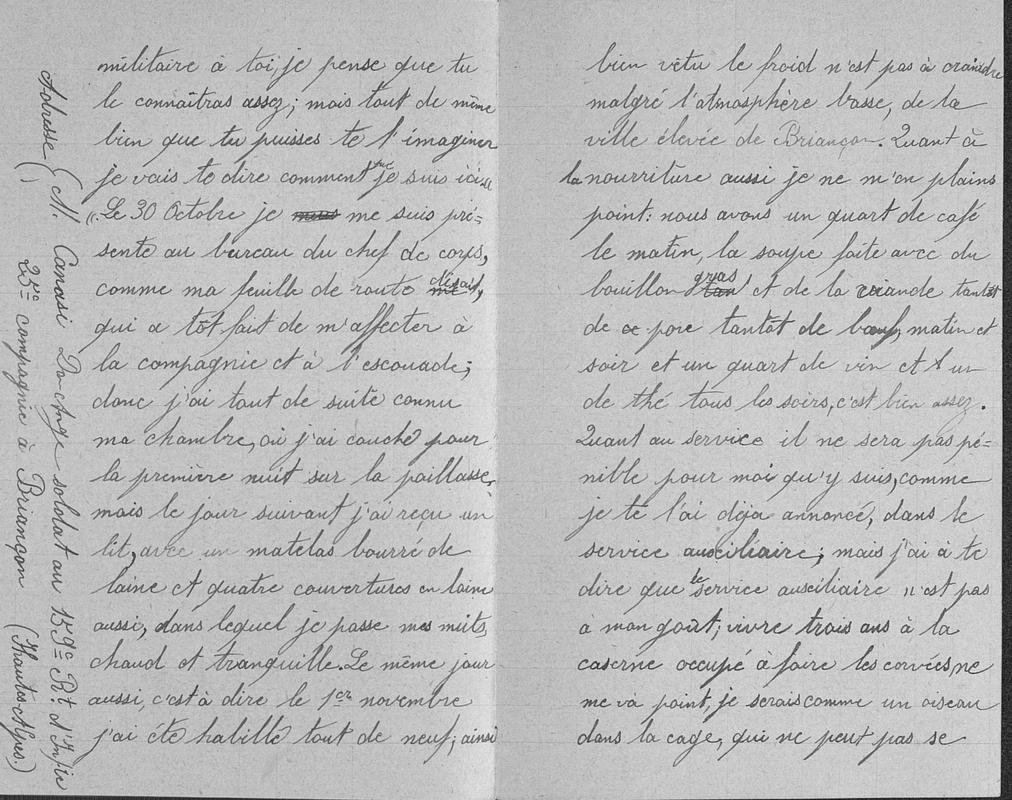 militaire à toi, je pense que tu
le connaîtras assez; mais tout de même
bien que tu puisses te l'imaginer
je vais te dire comment je suis ici
"Le 30 Octobre je me suis pré=
sente au bureau du chef de corps,
comme ma feuille de route disait,
qui a tôt fait de m'affecter à
la compagnie et à l'escouade;
donc j'ai tout de suite connu
ma chambre, où j'ai couché pour
la première nuit sur la paillasse,
mais le jour suivant j'ai reçu un
lit, avec un matelas bourré de
laine et quatre couvertures en laine
aussi, dans lequel je passe mes nuits,
chaud et tranquille. Le même jour
aussi, c'est à dire le 1er novembre
j'ai été habillé tout de neuf; ainsi
bien vêtu le froid n'est pas à craindre
malgré l'atmosphère basse, de la
ville élevée de Briançon. Quant à
la nourriture aussi je ne m'en plains
point: nous avons un quart de café
le matin, la soupe faite avec du
bouillon gras et de la viande tantôt
de porc tantôt de bœuf, matin et
soir et un quart de vin et un
de thé tous les soirs, c'est bien assez.
Quant au service il ne sera pas pé=
nible pour moi qu'y suis, comme
je te l'ai déja annoncé, dans le
service auxiliaire; mais j'ai à te
dire que le service auxiliaire n'est pas
à mon goût; vivre trois ans à la
caserne occupé à faire les corvées, ne
me va point, je serais comme un oiseau
dans la cage, qui ne peut pas se
Adresse (M. Canasi Do-Ange soldat au 159e Rt. d'Inf.ie
25e compagnie à Briançon (Hautes Alpes.)